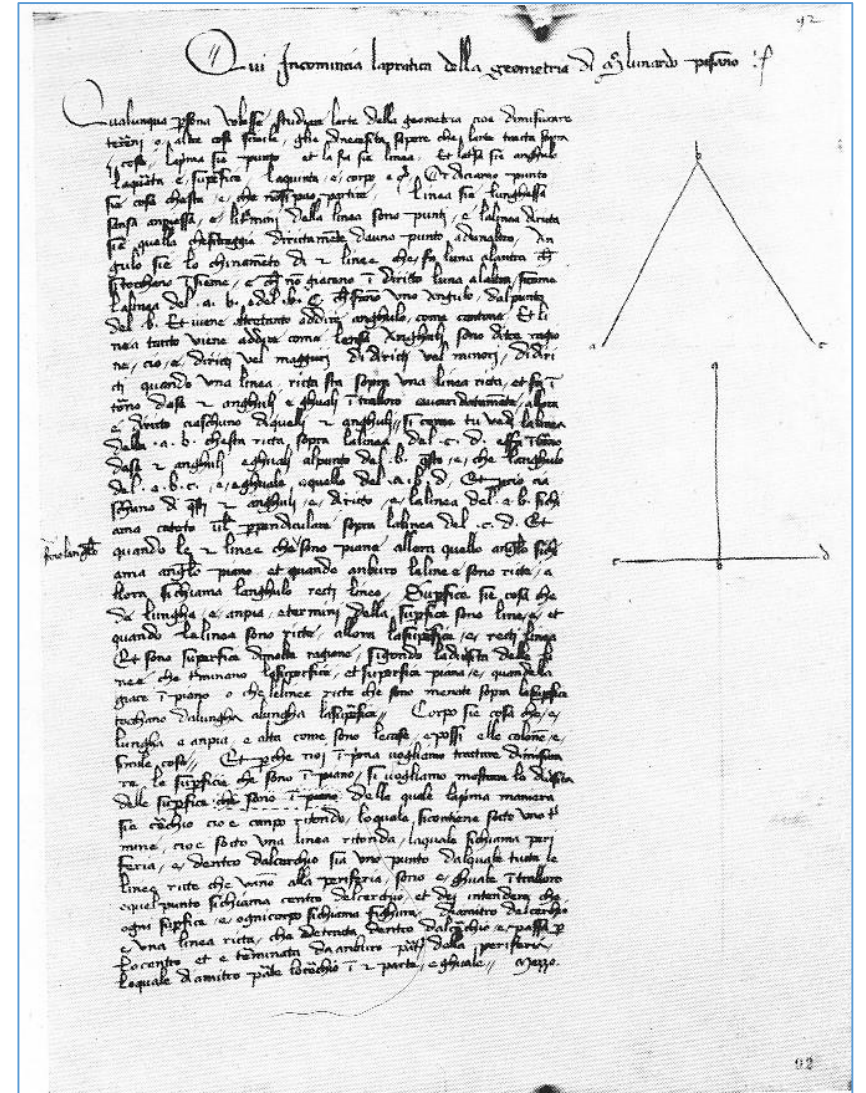 92
Qui Incomincia lapratica della geometria di mº lunardo pisano
Qualunqua psona volesse studiare larte della geometria cioe dimisurare
terreni o altre cose simile, glie dnecesita sapere che larte tracta sopra
cose, laprima sie punto et la sa sie linea. Et latsa sie anghulo
laquarta e, supfice laquinta, e, corpo Et diciamo punto
sie cosa chesta, e, che nosi puo partire, linea sie lunghessa
sensa anpiessa, e, li termini della linea sono punti, e lalinea diricta
sie quella chesitraggie dirictamete dauno punto adunaltro, An
gulo sie lo chinameto di 2 linee che, fa luna alautra
sitochano isieme, e no giaceno i diricto luna alaltra, sicome
lalinea del .a. b. edel .b. c. fano uno angulo, dalpunto
del .b. Et viene altretanto addire anghulo, come cantone Et li
nea tanto viene addire come lensa Anghuli sono ditre ragio
ne, cio, e, diricti vel maggiori di diricti vel minori, di diri
cti quando una linea, ricta sta sopra una linea ricta, et fa i
torno dase 2 anghuli e ghuali itralloro allora
e diricto ciaschuno diquelli 2 anghuli si come tu vedi lalinea
della .a. b. chesta ricta, sopra lalinea del .c. d. essa itorno
dase 2 anghuli eghuali alpunto del .b. qsto, e, che langhulo
del .a. b. c. e, eghuale aquello del .a. b. d, Et pcio cia
schuno di qsti 2 anghuli, e, diricto, e, lalinea del .a. b. sichi
ama cateto ppendiculare sopra lalinea del .c. d. Et
quando le 2 linee che sono piane allora quello anglo sich
ama anglo piano et quando anburo laline e sono ricte, a
llora sichiama langhulo recti lineo, Supfice sie cosa che
da lungha, e, anpia, etermini della supfice sono line, e, et
quando lalinea sono ricte, allora lasupifice, e, recti linea
Et sono superfice dimolta ragione, sigondo ladiusita delle li
nee che terminano lasiperfice, et superfice piana, e, quandella
giace i piano o che lelinee ricte che sono menate sopra lasupfice
tochano dalungha alungha lasupifice Corpo sie cosa che, e,
lungha e anpia, e alta come sono lecase, epossi elle colone, e,
simile cose Et pche noi i prima vogliamo tractare dimisura
re le supficie che sono i piano, si vogliamo mostrare lo
delle supfice che sono i piano delle quale laprima maniera
sie cerchio cio e canpo ritondo, loquale, sicontiene socto uno t
mine, cio e socto una linea ritonda, laquale sichiama peri
feria, e, dentro dalcerchio sia uno punto dalquale tucte le
linee ricte che vano alla periferia, sono e, ghuale itralloro
equel punto sichiama centro delcerchio, et dei intendere che
ogni supfice, e, ognicorpo sichiama fighura, diamitro delcerchio
e una linea ricta, che detracta dentro dalcerchio e, passa p
locentro et e terminata da anburo parte della periferia,
loquale diamitro parte locerchio i 2 parte, e ghuale Mezzo.
b
a
c
a
c
b
d
92